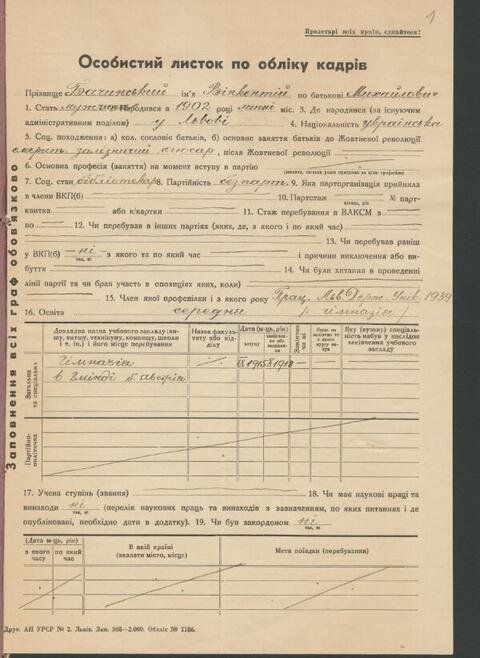 1
Пролетарі всіх країн, єднайтеся!
Особистий листок по обліку кадрів
Прізвище Бачинський ім'я Вінкентій по батькові Михайлович
1. Стать мужчина Народився в 1902 році липні міс. 3. Де народився (за існуючим
адміністративним поділом) у Львові 4. Національність українська
5. Соц. походження: а) кол. сословіє батьків, б) основне заняття батьків до Жовтневої революції
залізничий слюсар, після Жовтневої революції
6. Основна професія (заняття) на момент вступу в партію
7. Соц. стан бібліотекар 8. Партійність безпарт. 9. Яка парторганізація прийняла
в члени ВКП(б) 10. Партстаж № парт-
місяць, рік
квитка або к/картки 11. Стаж перебування в ВЛКСМ з
по 12. Чи перебував в інших партіях (яких, де, з якого і по який час)
13. Чи перебував раніш
у ВКП(б) ні з якого та по який час і причини виключення або ви-
так, ні
буття 14. Чи були хитання в проведенні
лінії партії та чи брав участь в опозиціях яких, коли)
15. Член якої профспілки і з якого року Прац. Льв. Держ. Унів. 1939
16. Освіта середня /: гімназія/
Докладна назва учбового закладу (ви-
шу, втишу, технікуму, комвишу, школи
і т. ін.) і його місце перебування
Назва факуль-
тету або від-
ділу
Дата (м-ць, рік)
вступу
Закінчив
чи ні
Яку (вузьку) спеціаль-
ність набув у наслідок
закінчення учбового
закладу
Загальна
та спеціальна
гімназія
Партійно-
політична
17. Учена ступінь (звання) 18. Чи має наукові праці та
винаходи ні (перелік наукових праць та винаходів з зазначенням, по яких питаннях і де
так, ні
опубліковані, необхідно дати в додатку). 19. Чи був закордоном ні
так, ні
(Дата м-ць, рік)
з якого
часу
по який
час
В якій країні
(вказати місто, місце)
Мета поїздки (перебування)
Друк. АН УРСР № 2. Львів. Зам. 368—2.000. Обліт № 1186.
Заповнення всіх граф обов'язково